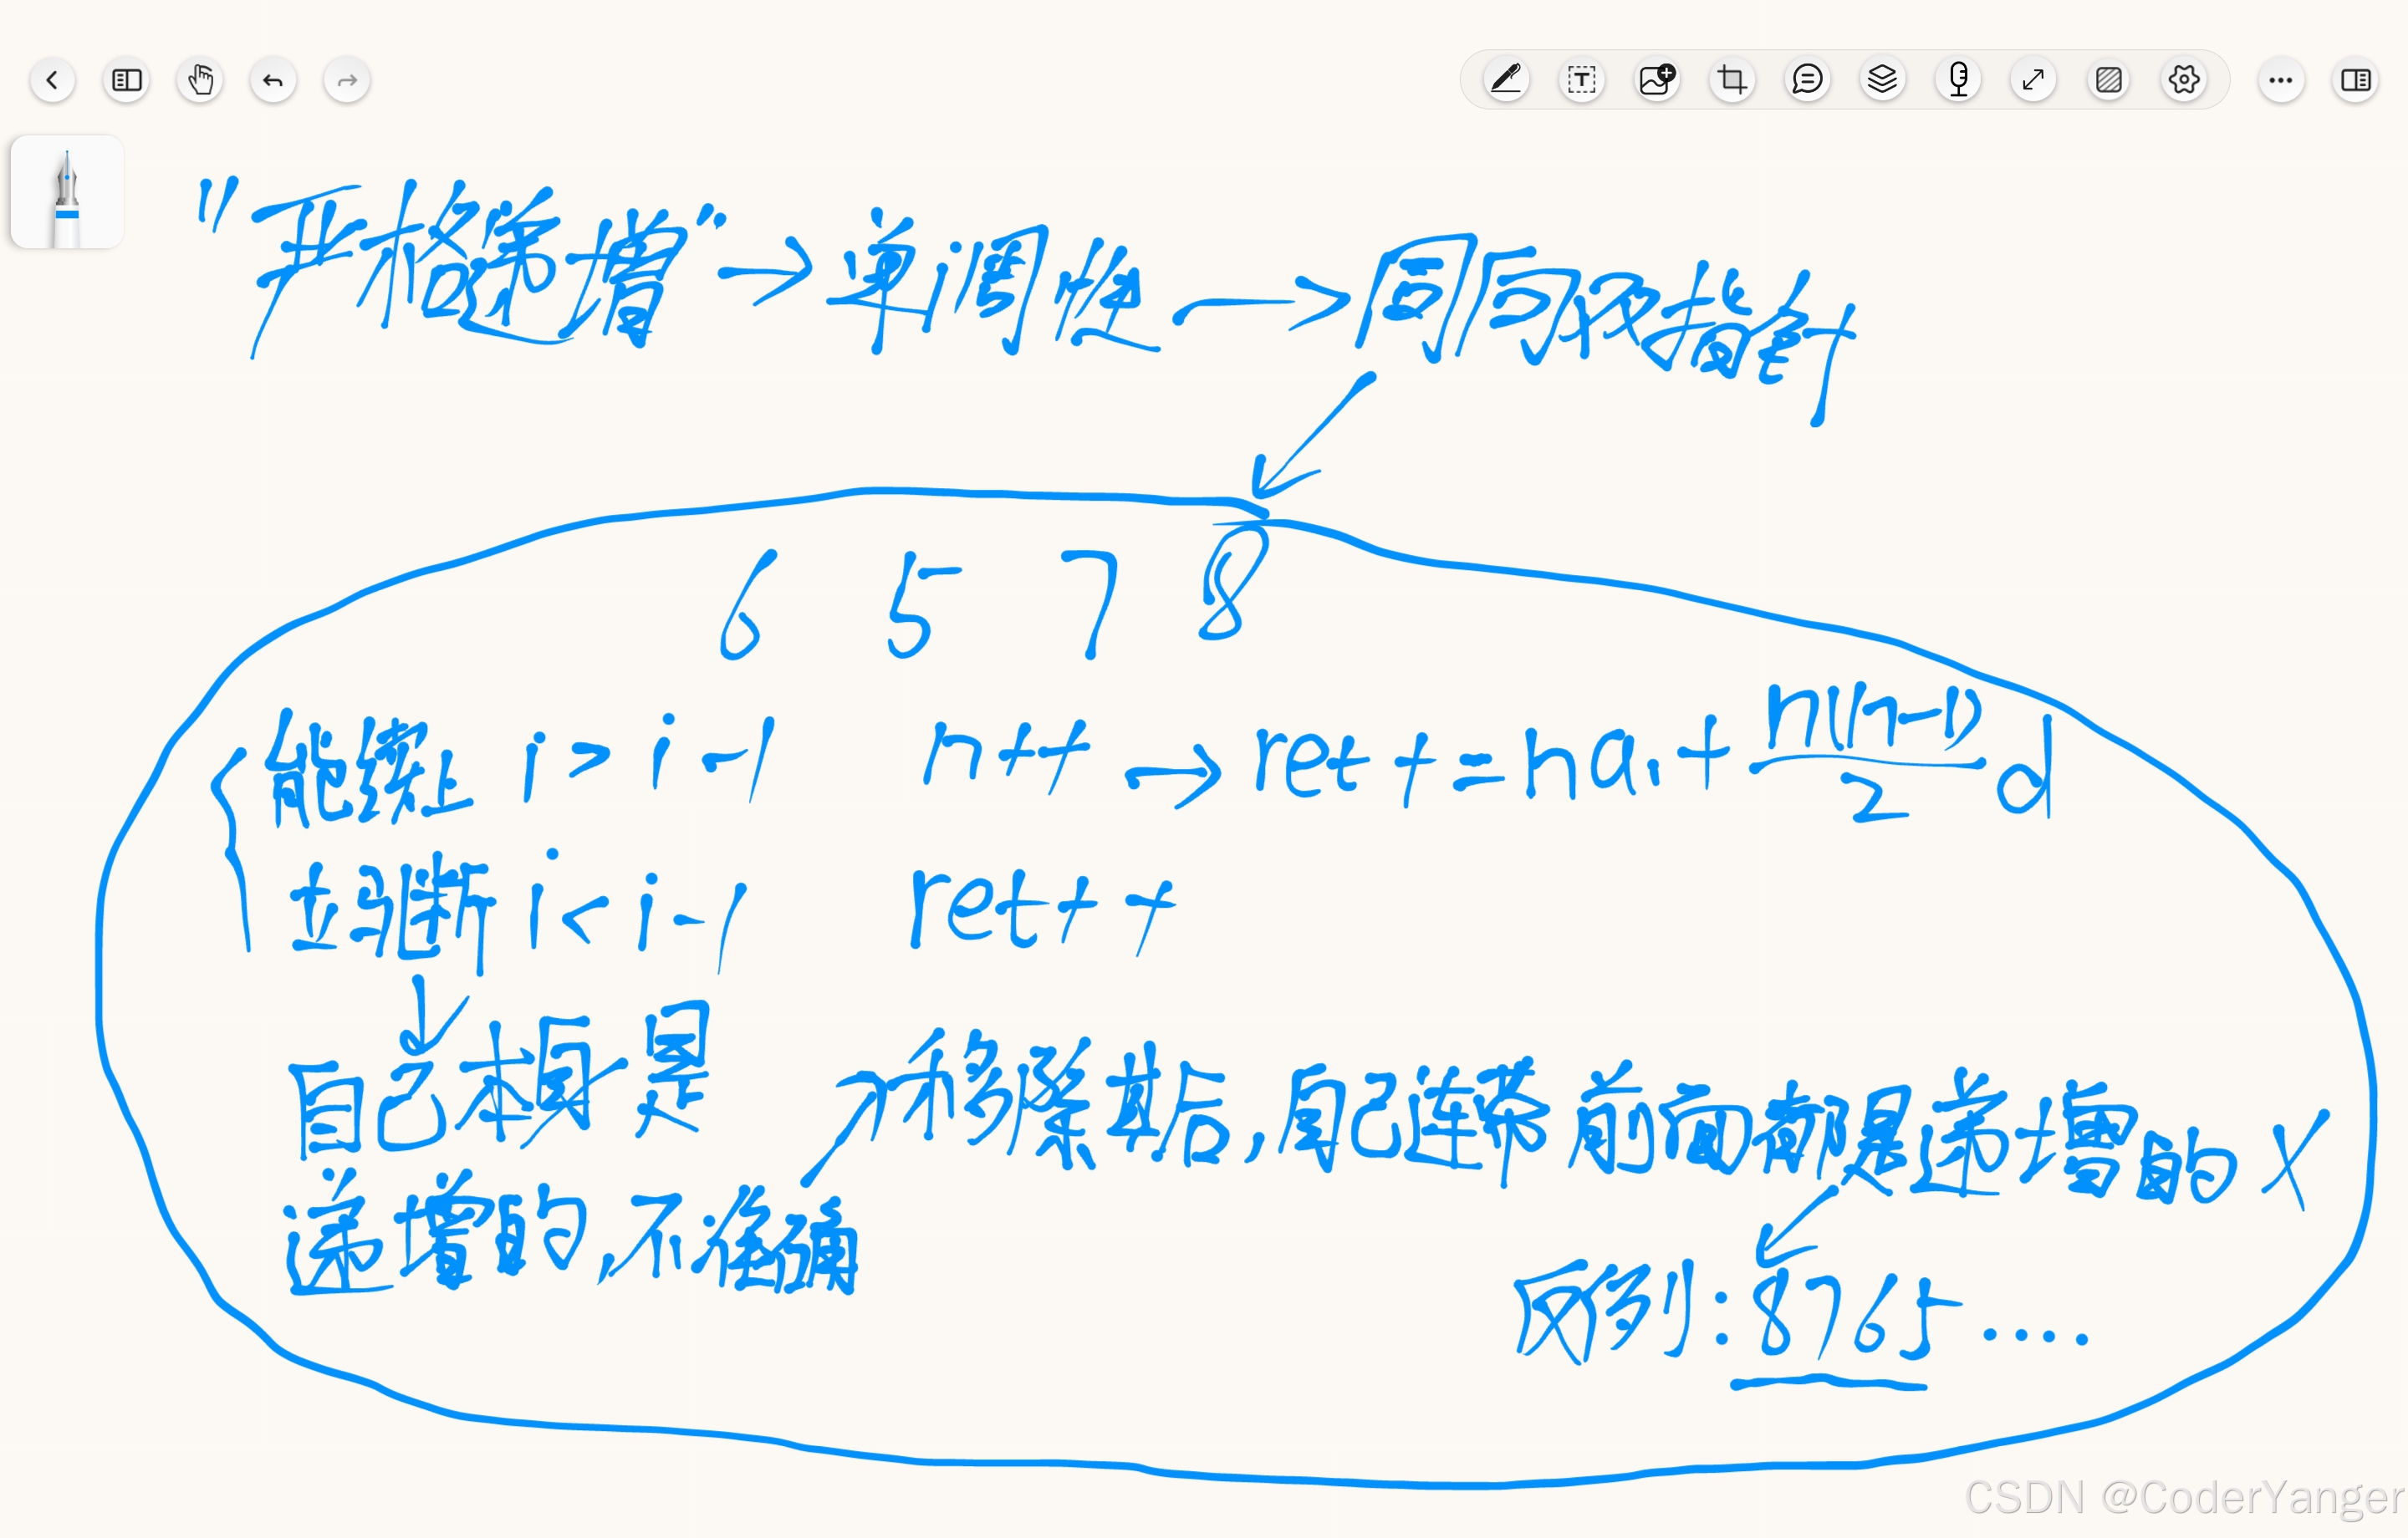 "严格递增"→单调性→同向双指针
6 5 7 8
能续上 i > i-1 n++ → ret += na₁ + n(n-1)/2 d
中断 i < i-1 ret++
自己本身是
递增的,不准确
不移除其后,自己连带前面都是递增的 X
反例:8765....
CSDN @CoderYanger